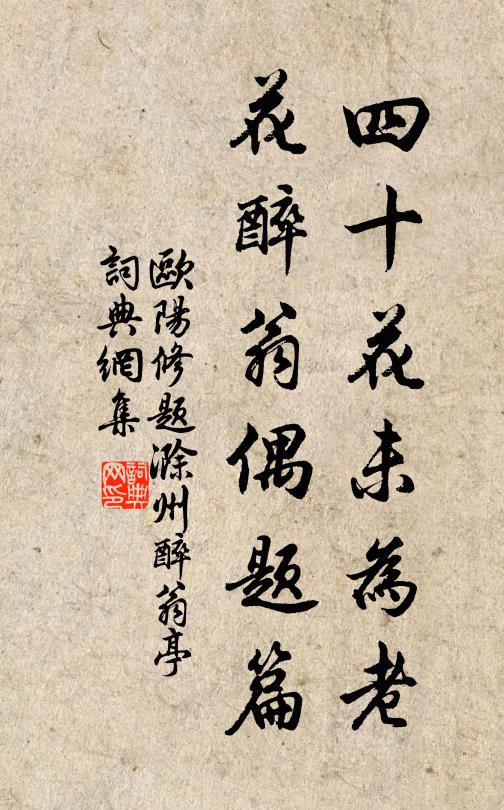 四十花未為老
花醉翁偶題篇
歐陽修題滁州醉翁亭
詞典網集
詞典
网印